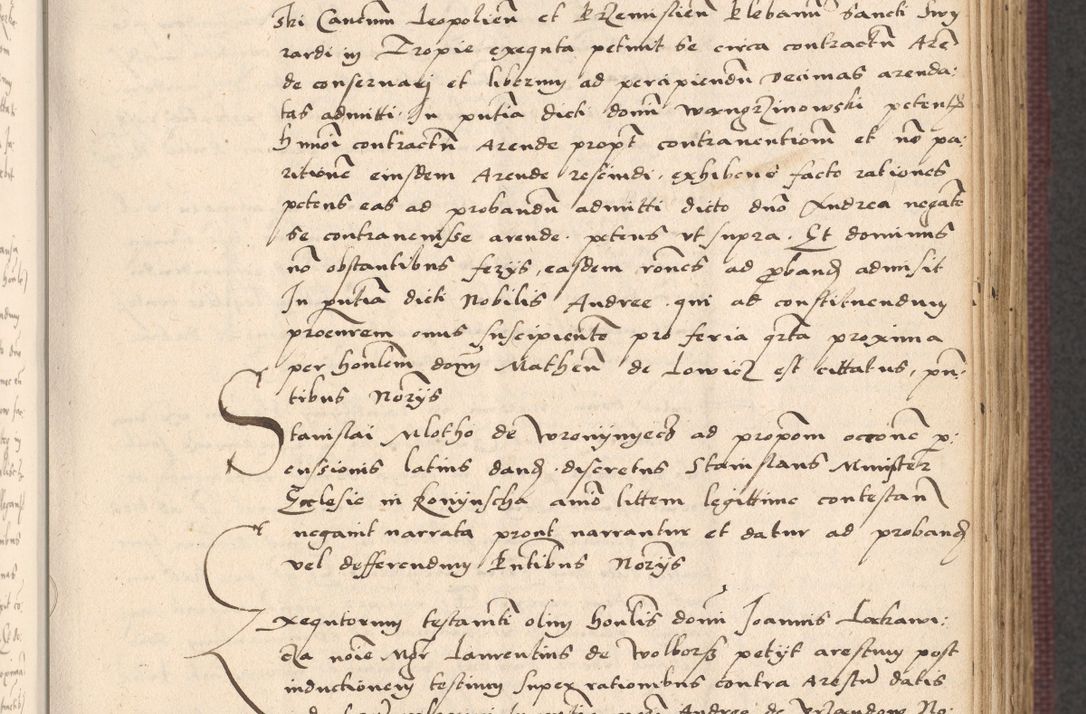 ski Canonm Leopolien et Przemislien Plebanu Sancti Swy
rardi in Tropie exequta petivit se circa contractu Aren
de conservari et liberum ad percipiendu decimas arenda:
tas admitti. In pntia dicti domi petens
hmoi contractu Arende propt contraventiom et no pa:
ritione eiusdem Arende rescindi. exhibens facto rationes
petens eas ad probandu admitti dicto dno Andrea negate
se contravenisse arende. petens ut supra. Et dominus
no obstantibus ferys, easdem rones ad proband admisit
In pntia dicti Nobilis Andree. qui ad constituendum
procurem onus suscipiente pro feria qrta proxima
per honlem dom Matheu de Lowicz est cittatus, pn:
tibus Norys
Stanislai Mlotho de ad propom occone p:
cussionis latius dand. discretus Stanislaus Minister
Ecclesie in Konynscha littem legittime contestan
negavit narrata prout narrantur et datur ad proband
vel defferendum Pntibus Norys
Exequtorum testamti olim honlis domi Joannis
noie Mgr Laurentius de Wolborz petyt arestum post
inductionem testium super rationibus contra Arestu datis